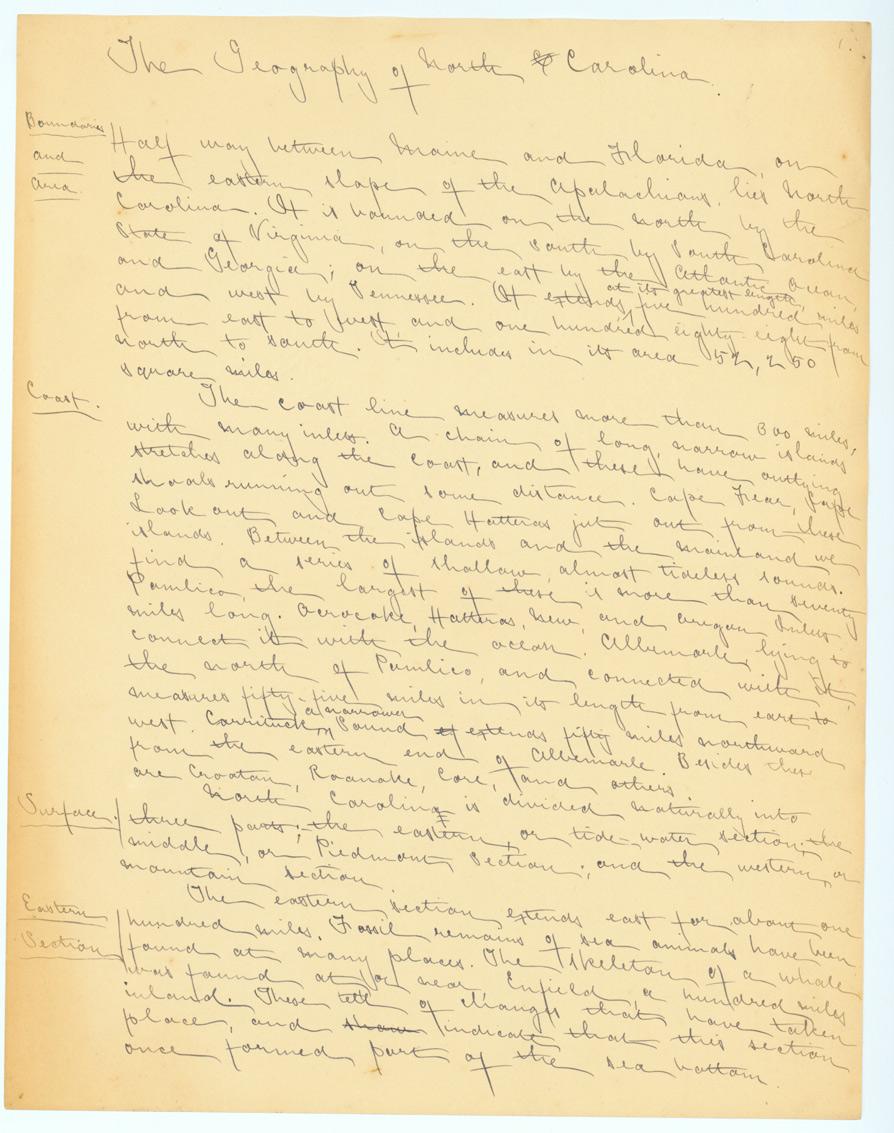 The Geography of North Carolina.
Boundaries
and
area.
Half way between Maine and Florida, on
the eastern slope of the Apalachians, lies North
Carolina. It is bounded on the north by the
State of Virginia, on the south by South Carolina
and Georgia; on the east by the Atlantic Ocean,
and west by Tennessee. It extends, at its greatest length, five hundred miles
from east to west, and one hundred eighty-eight from
north to south. It includes in its area 52,250
square miles.
Coast.
The coast line measures more than 300 miles,
with many inlets. A chain of long, narrow islands
stretches along the coast, and these have outlying
shoals running out some distance. Cape Fear, Cape
Look out and Cape Hatteras jut out from these
islands. Between the islands and the mainland we
find a series of shallow, almost tideless sounds.
Pamlico, the largest of these is more than seventy
miles long. Ocracoke, Hatteras, New, and Oregon Inlets
connect it with the ocean. Albemarle, lying to
the north of Pamlico, and connected with it,
measures fifty-five miles in its length from east to
west. Currituck, a narrower Sound extends fifty miles northward
from the eastern end of Albemarle. Besides these
are Croatan, Roanoke, Core, and others.
Surface.
North Carolina is divided naturally into
three parts; the eastern, or tide-water section; the
middle, or Piedmont Section; and the western, or
mountain section.
Eastern
Section
The eastern section extends east for about one
hundred miles. Fossil remains of sea animals have been
found at many places. The skeleton of a whale
was found at or near Enfield, a hundred miles
inland. These tell of changes that have taken
place, and indicate that this section
once formed part of the sea bottom.